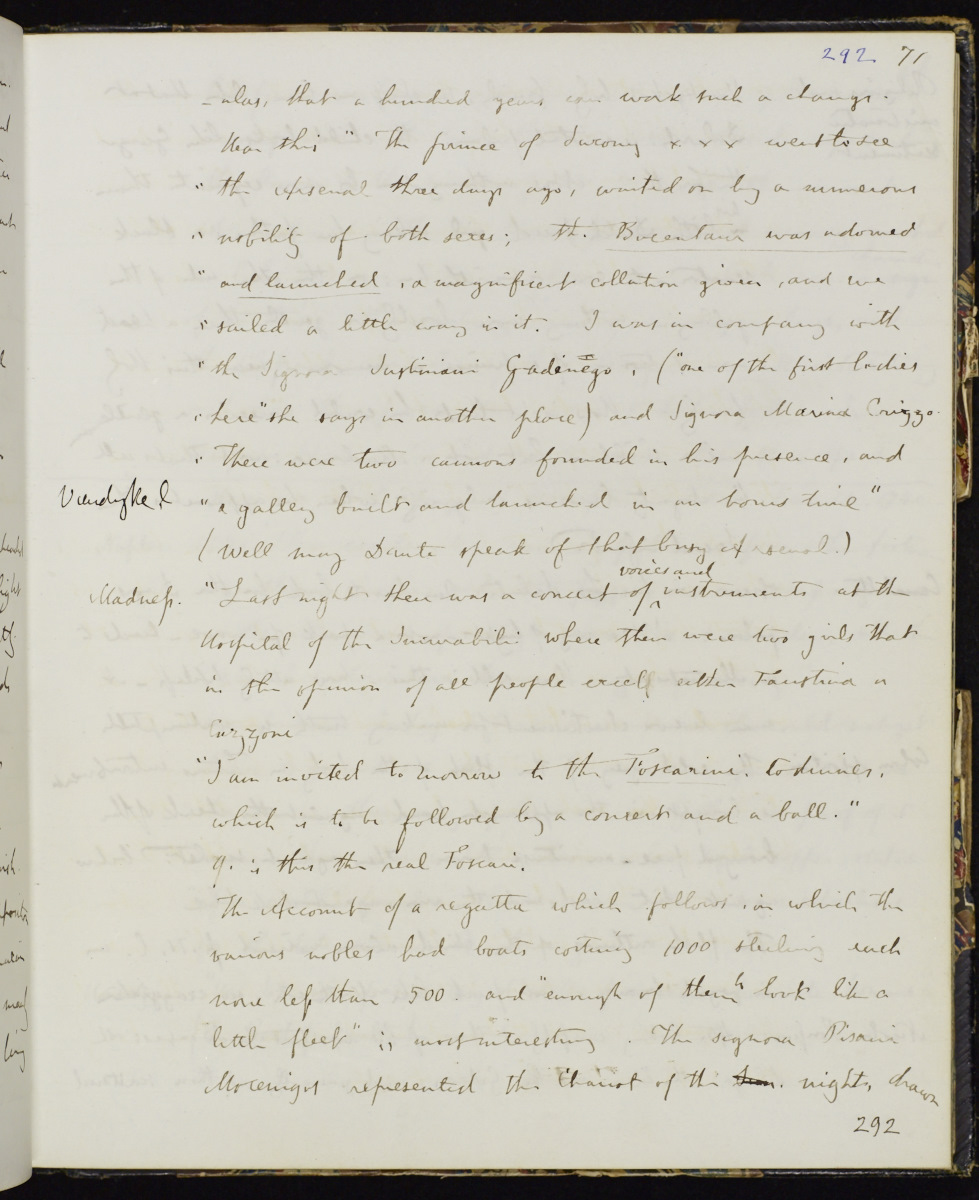 292 71
- alas, that a hundred years can work such a change.
Hear this " The prince of Saxony x x x went to see
" the Arsenal three days ago, waited on by a numerous
" nobility of both sexes; the Bucentaur was adorned
" and launched, a magnificent collation given, and we
" sailed a little way in it. I was in company with
" the Signora Justiniani Gradenego, ("one of the first ladies
" here" she says in another place) and Signora Marina Crizzo.
" There were two cannons founded in his presence, and
" a galley built and launched in an hours time"
(Well may Dante speak of that busy Arsenal.)
Madness. "Last night there was a concert of voices and instruments at the
Hospital of the Incurabili where there were two girls that
in the opinion of all people excell either Faustina or
Cuzzoni
"I am invited to morrow to the Foscarini. to dinner,
which is to be followed by a concert and a ball."
q. is this the real Foscari.
The Account of a regatta which follows, in which the
various nobles had boats costing 1000 sterling each
none less than 500. and "enough of them to look like a
little fleet" is most interesting. The signora Pisani
Mocenigos represented the Chariot of the night, drawn
292